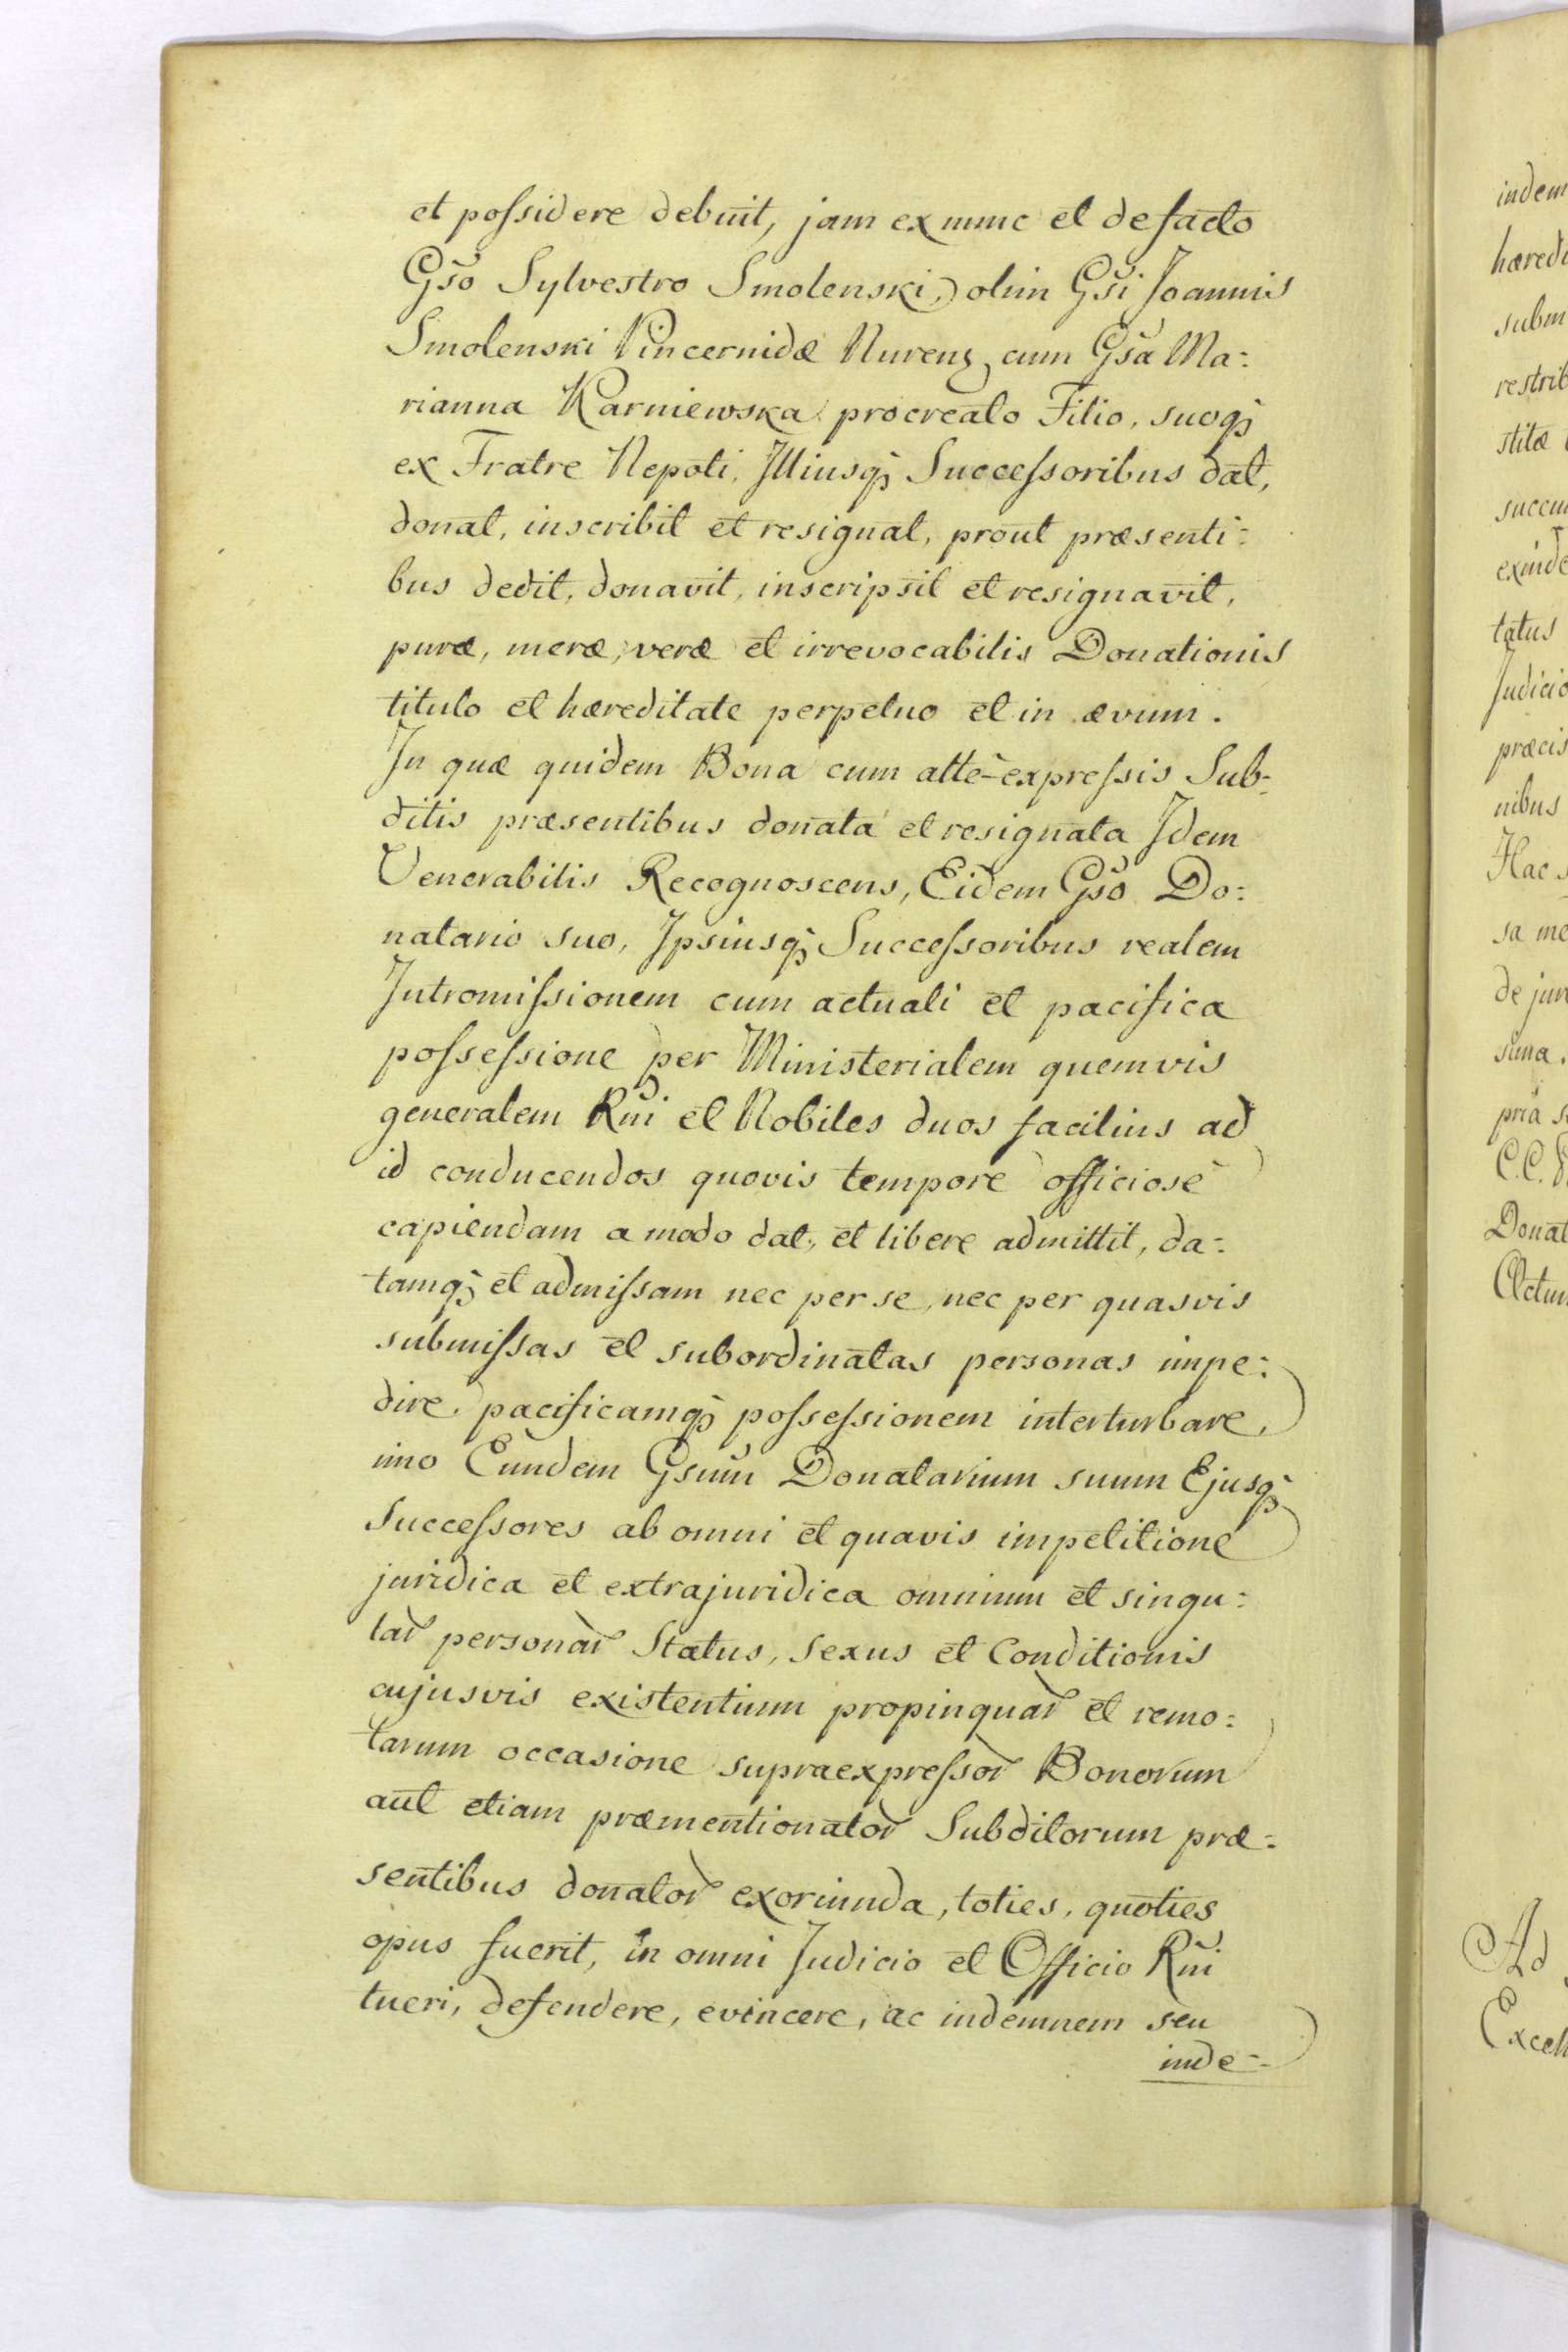 et possidere debuit, jam ex nunc et de facto
Gs̃o Sylvestro Smolenski, olim Gs̃i Joannis
Smolenski Pincernidæ Nurens, cum Gs̃a Ma=
rianna Karniewska procreato Filio, suoq̃
ex Fratre Nepoti, Illiusq̃ Successoribus dat,
donat, inscribit et resignat, prout præsenti=
bus dedit, donavit, inscripsit et resignavit,
puræ, meræ, veræ et irrevocabilis Donationis
titulo et hæreditate perpetuo et in ævum.
In quæ quidem Bona cum atte-expressis Sub=
ditis præsentibus donata et resignata Idem
Venerabilis Recognoscens, Eidem Gs̃o Do=
natario suo, Ipsiusq̃ Successoribus realem
Intromissionem cum actuali et pacifica
possessione per Ministerialem quemvis
generalem Rñi et Nobiles duos facilius ad
id conducendos quovis tempore officiosè
capiendam a modo dat, et libere admittit, da=
tamq̃ et admissam nec per se, nec per quasvis
submissas et subordinatas personas impe=
dire, pacificamq̃ possessionem interturbare,
imo Eundem Gsũm Donatarium suum Ejusq̃
Successores ab omni et quavis impetitione
juridica et extrajuridica omnium et singu=
lar̃ personar̃ Status, Sexus et Conditionis
cujusvis existentium propinquar̃ et remo=
tarum occasione supraexpressor̃ Bonorum
aut etiam præmentionator̃ Subditorum præ=
sentibus donator̃ exoriunda, toties, quoties
opus fuerit, in omni Judicio et Officio Rñi
tueri, defendere, evincere, ac indemnem seu
inde=
indem
hæredi
subm
restrib
stitæ
succu
exinde
tatus
Judicio
præcis
nibus
Hac s
sa me
de jur
suma.
pria s
C.C.
Donat
Actum
Ad
Excell